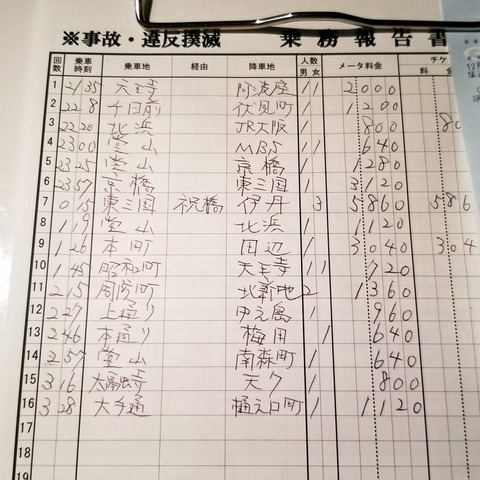 ※事故・違反撲滅 乗務報告書
回数 乗車時刻 乗車地 経由 降車地 人数 男 女 メータ料金 チケ 料 金
1 21 35 天王寺 阿波座 1 1 2000
2 22 8 千日前 伏見町 1 1200
3 22 20 北浜 JR大阪 1 800 80
4 23 00 堂山 MBS 1 1 640
5 23 25 堂山 京橋 1 1280
6 23 57 京橋 東三国 1 3120
7 0 15 東三国 祝橋 伊丹 3 5860 586
8 1 19 堂山 北浜 1 800
9 1 26 本町 田辺 1 3040 304
10 1 45 昭和町 天王寺 1 1 720
11 2 15 周防町 北新地 2 1360
12 2 27 上通り 中之島 1 960
13 2 46 本通り 梅田 1 640
14 2 57 堂山 南森町 1 640
15 3 16 太融寺 天六 1 800
16 3 28 大手通 樋之口町 1 1120
12月